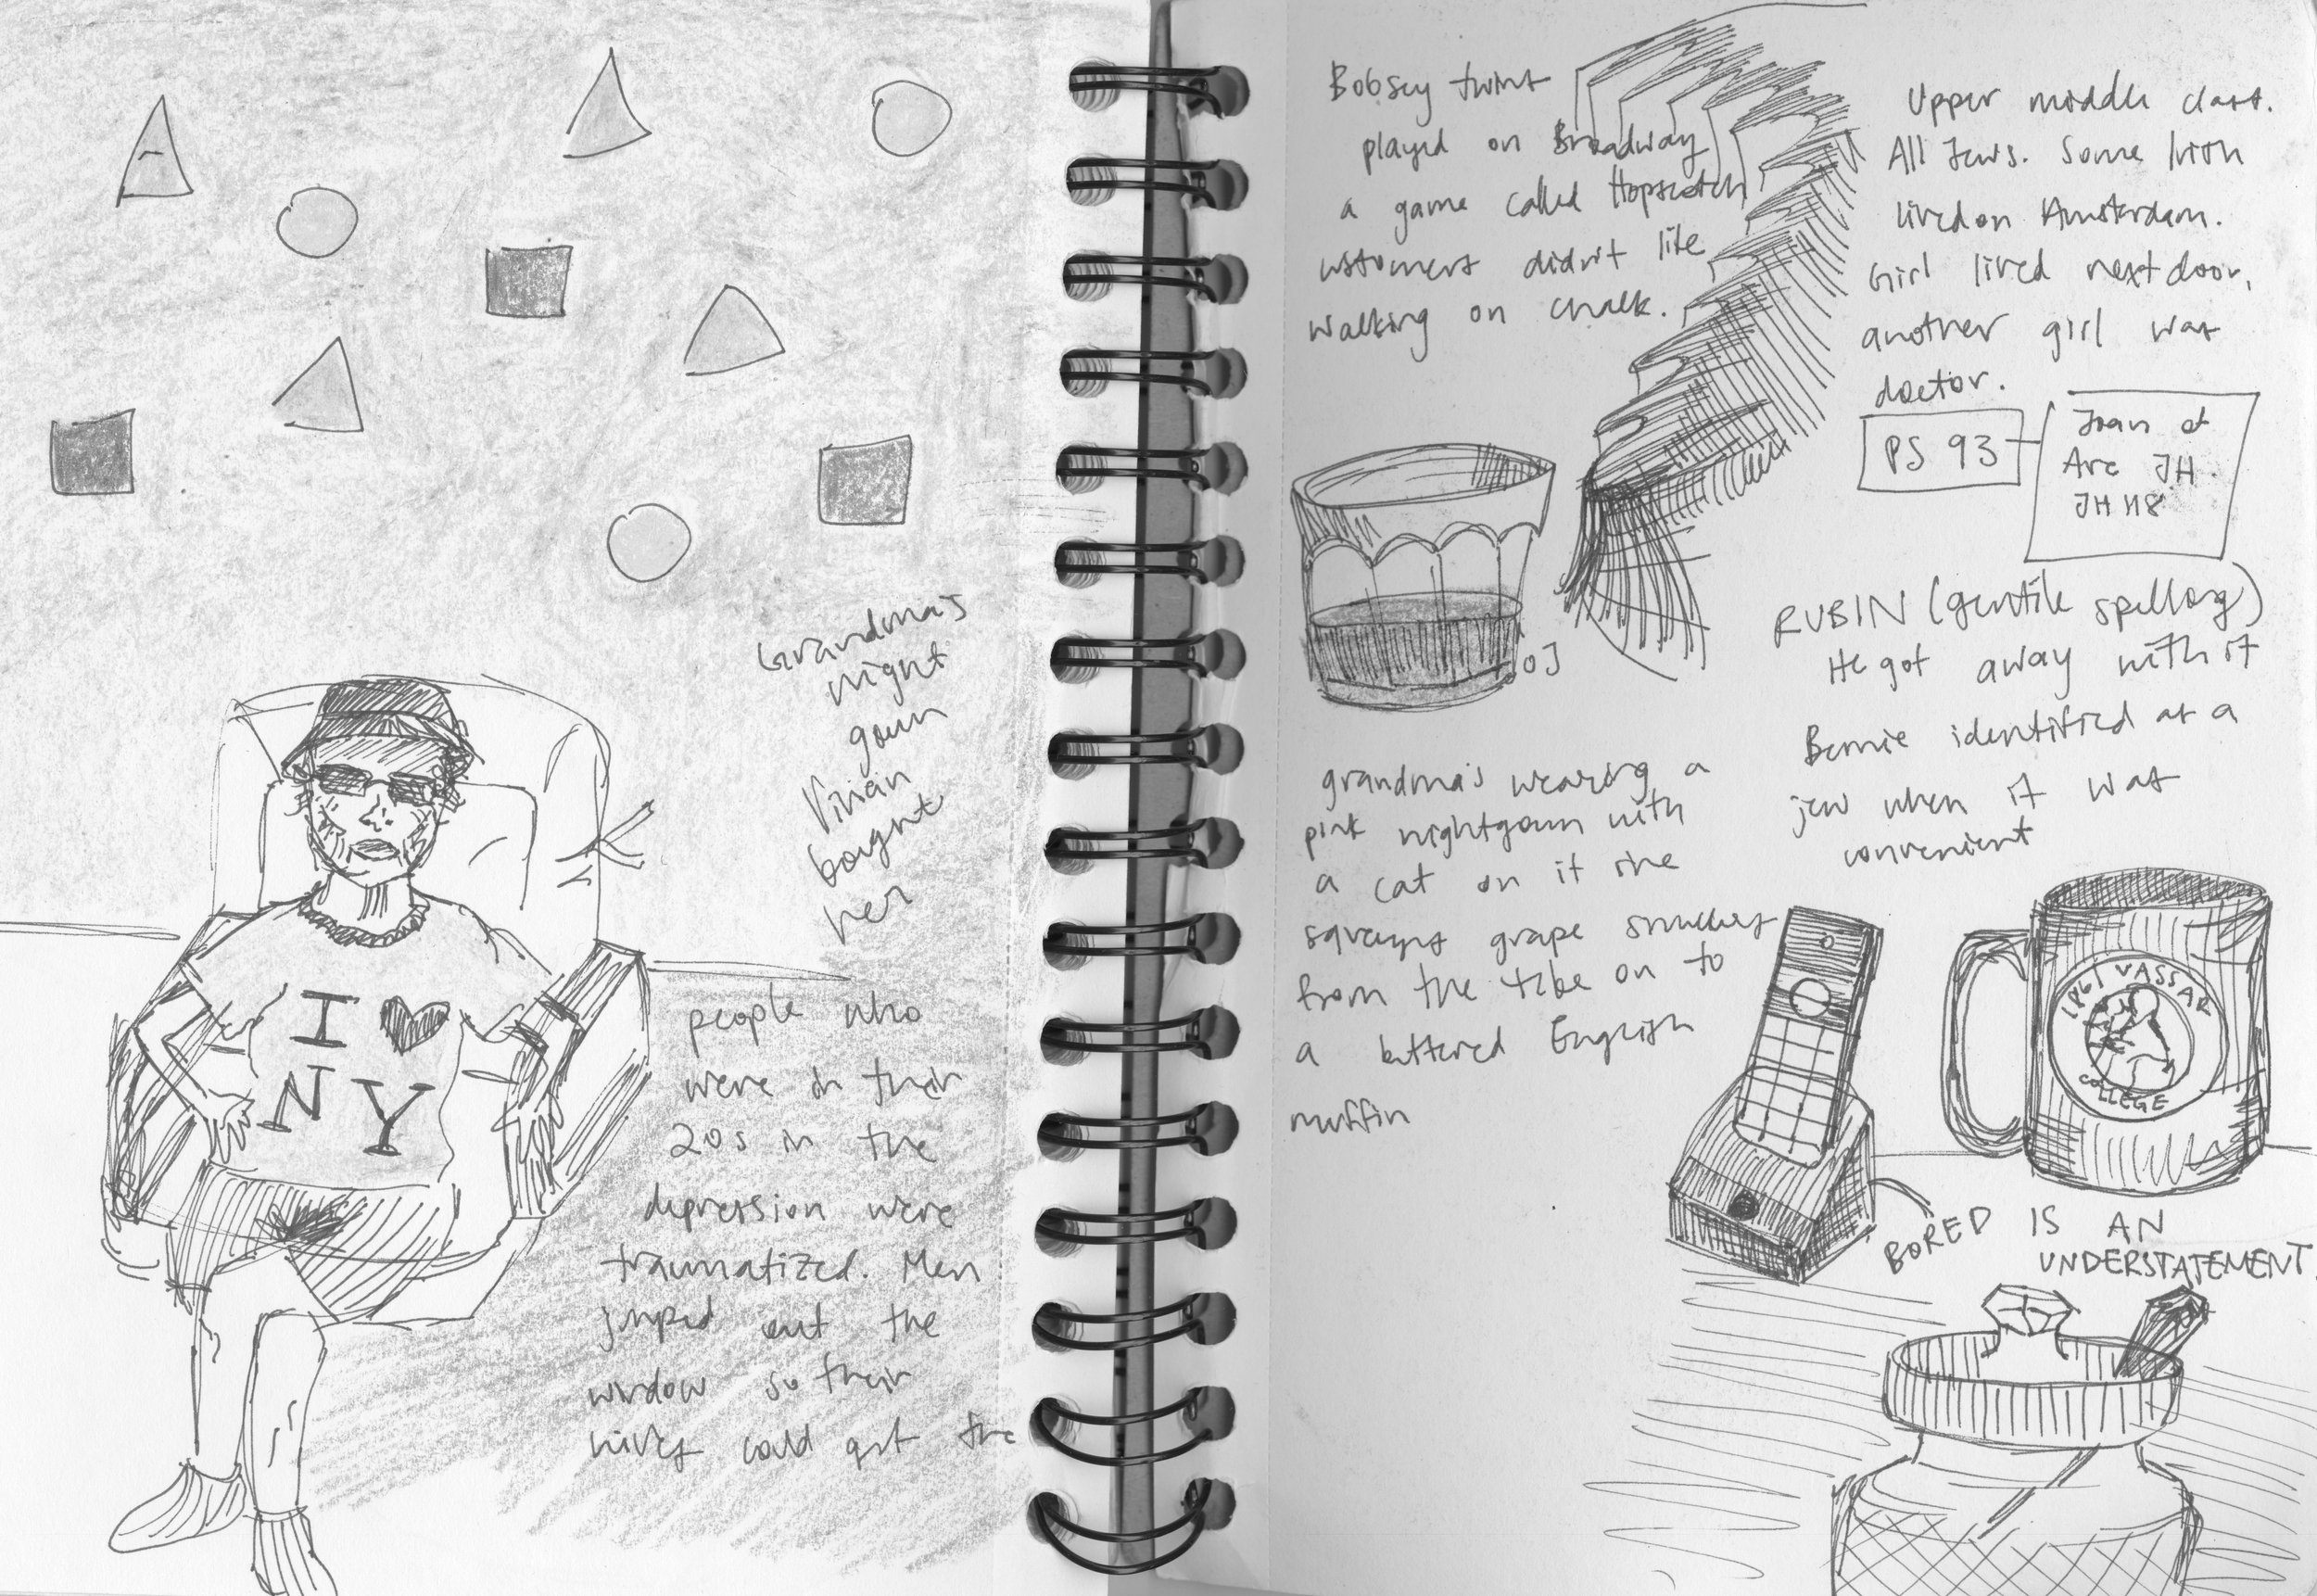 Grandma's
night
gown
Vivian
bought
her
I ♥
NY
people who
were in their
20s in the
depression were
traumatized. Men
jumped out the
window so their
wives could get the
Bobsey twins
played on Broadway
a game called Hopscotch
ustomers didn't like
walking on chalk.
OJ
grandma's wearing a
pink nightgown with
a cat on it she
squeezes grape smuckers
from the tube on to
a buttered English
muffin
Upper middle class.
All Jews. Some Irish
lived on Amsterdam.
Girl lived next door,
another girl was
doctor.
PS 93
Joan of
Arc JH
JH 118
RUBIN (gentile spelling)
He got away with it
Bernie identified as a
jew when it was
convenient
1861 VASSAR
COLLEGE
BORED IS AN
UNDERSTATEMENT.